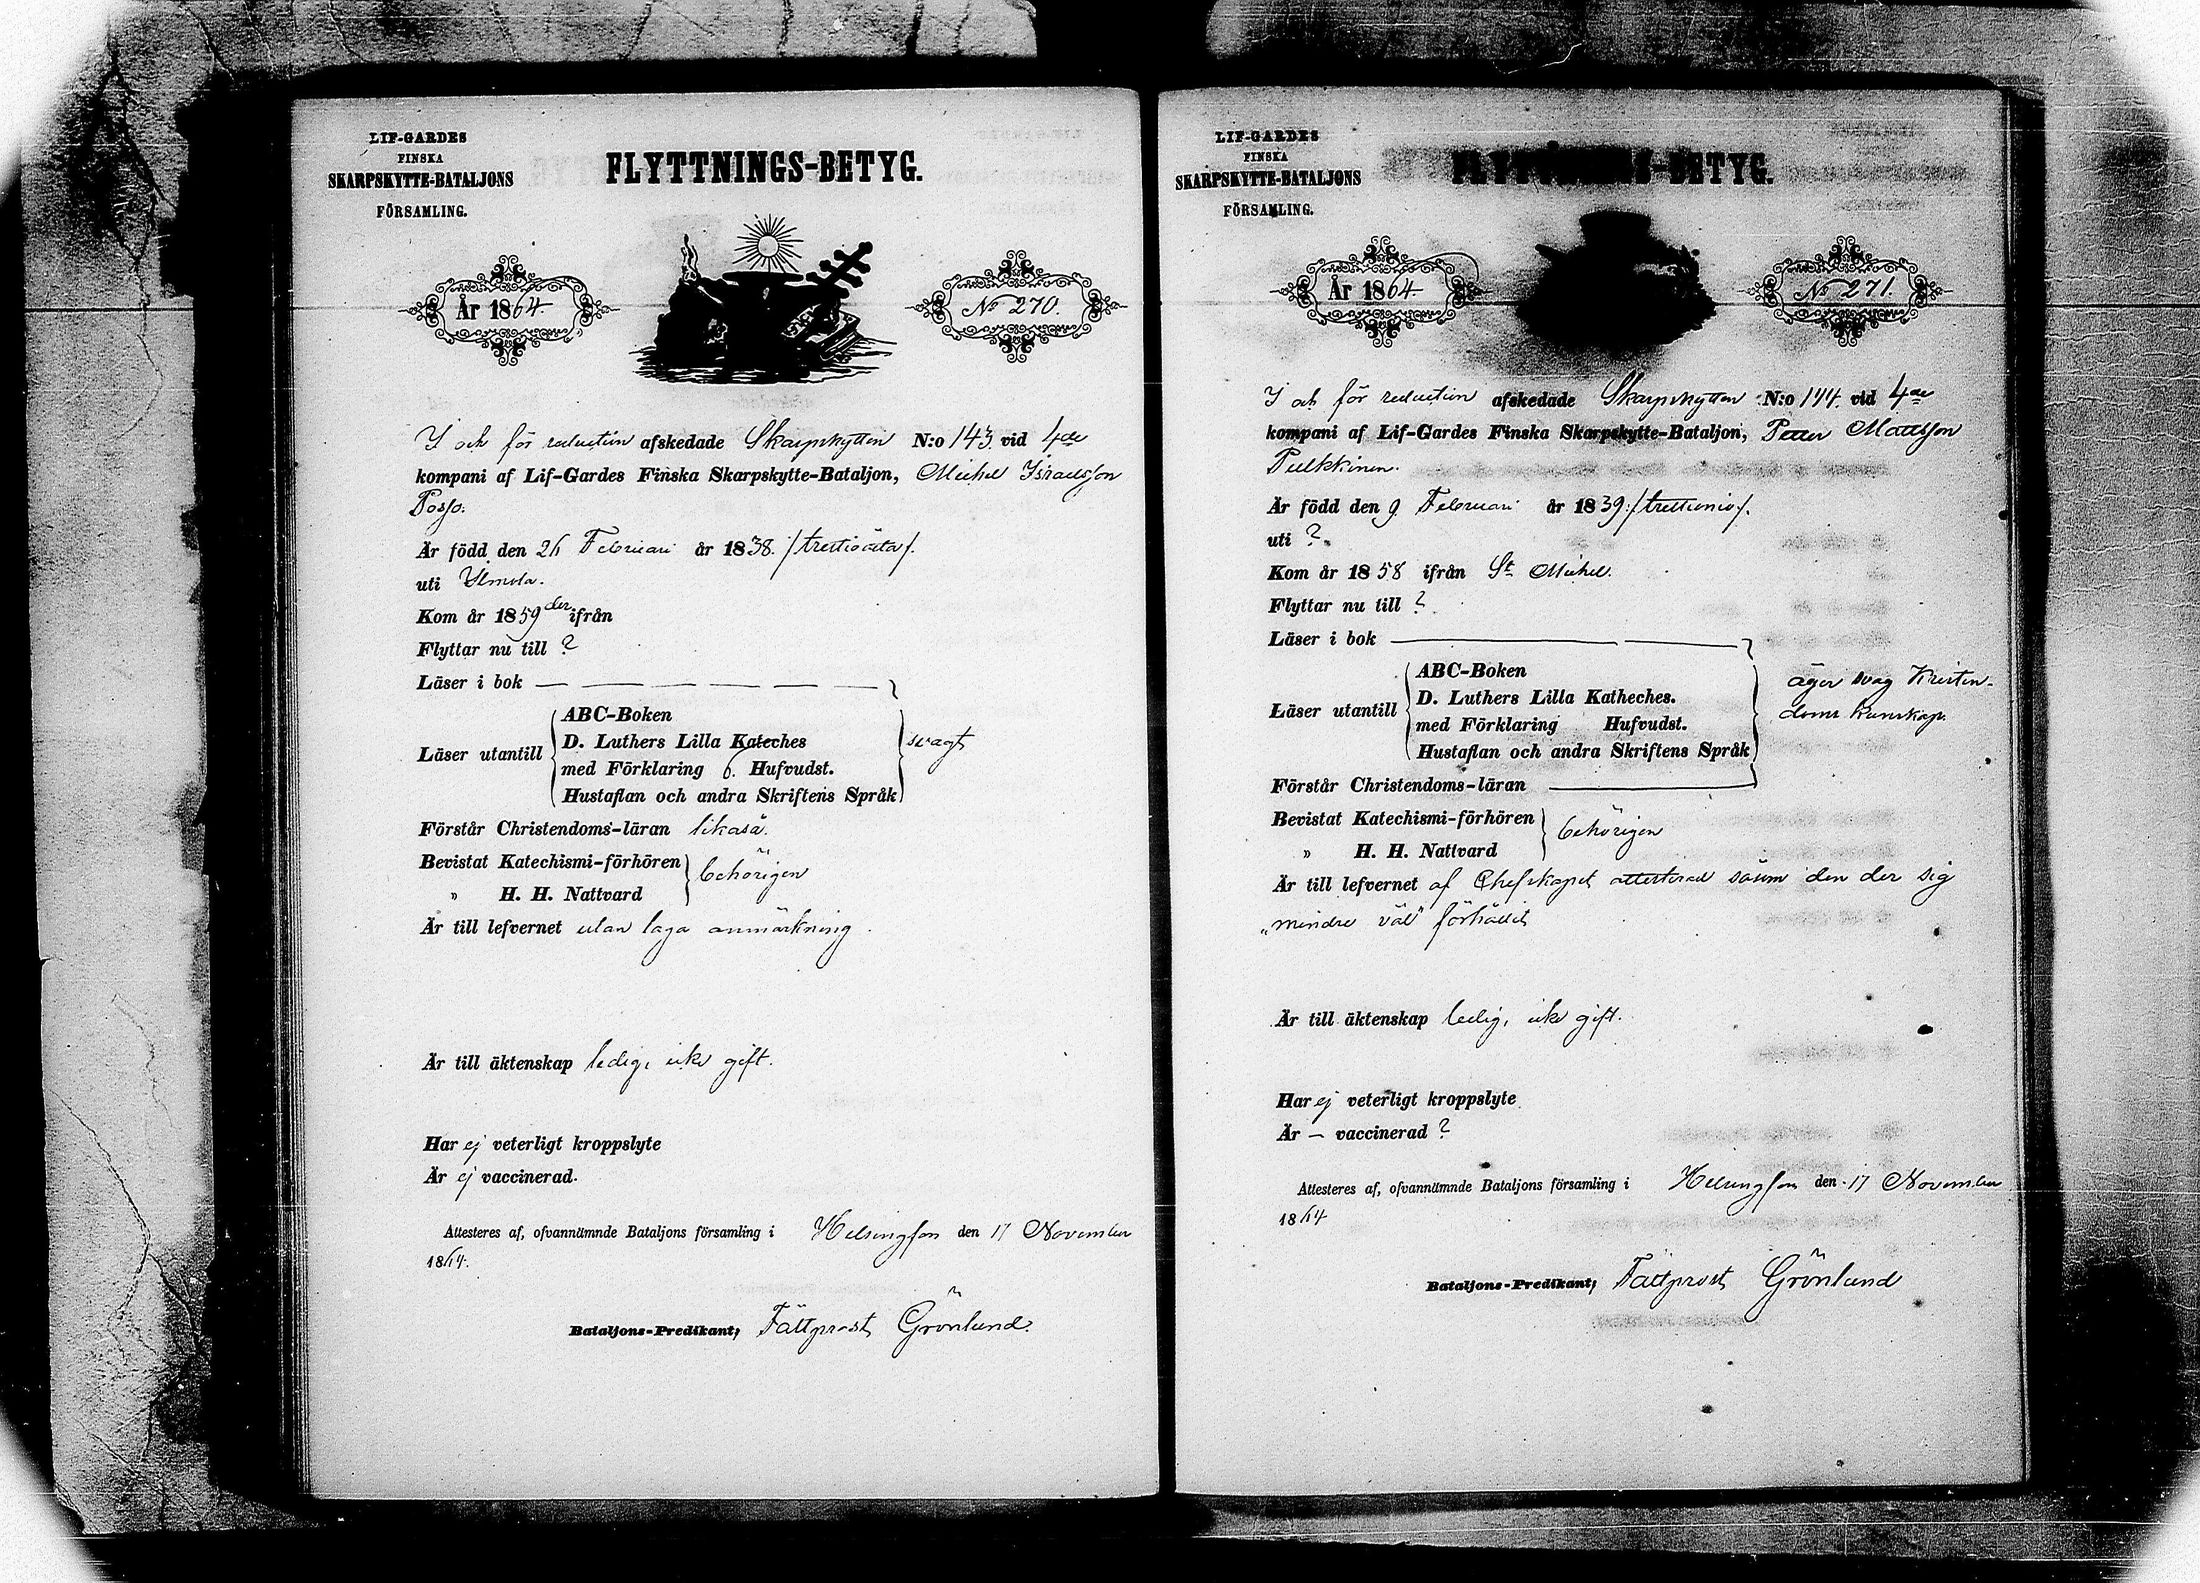 LIF-GARDES
FINSKA
SKARPSKYTTE-BATALJONS
FÖRSAMLING.
FLYTTNINGS-BETYG.
År 1864.
No 270.
I och för reduction afskedade Skarpskytten N:o 143 vid 4de
kompani af Lif-Gardes Finska Skarpskytte-Bataljon, Michel Israelsson
Posso.
Är född den 26 Februari år 1838. /trettioåtta/.
uti Ilmola.
Kom år 1859 der ifrån
Flyttar nu till ?
Läser i bok — — — — — —
Läser utantill
ABC-Boken
D. Luthers Lilla Kateches
med Förklaring 6. Hufvudst.
Hustaflan och andra Skriftens Språk
svagt
Förstår Christendoms-läran likaså.
Bevistat Katechismi-förhören
„ H. H. Nattvard
behörigen
Är till lefvernet utan laga anmärkning.
Är till äktenskap ledig, icke gift.
Har ej veterligt kroppslyte
Är ej vaccinerad.
Attesteres af, ofvannämnde Bataljons församling i Helsingfors den 17 November
1864.
Bataljons-Predikant, Fältprost Grönlund.
LIF-GARDES
FINSKA
SKARPSKYTTE-BATALJONS
FÖRSAMLING.
FLYTTNINGS-BETYG.
År 1864.
No 271.
I och för reduction afskedade Skarpskytten N:o 144. vid 4de
kompani af Lif-Gardes Finska Skarpskytte-Bataljon, Petter Mattsson
Pulkkinen.
Är född den 9 Februari år 1839. /trettionio/.
uti ?
Kom år 1858 ifrån St Michel.
Flyttar nu till ?
Läser i bok
Läser utantill
ABC-Boken
D. Luthers Lilla Katheches.
med Förklaring Hufvudst.
Hustaflan och andra Skriftens Språk
äger svag Kristen-
doms kunskap.
Förstår Christendoms-läran
Bevistat Katechismi-förhören
„ H. H. Nattvard
behörigen
Är till lefvernet af Chefskapet attesterad såsom den der sig
„mindre väl" förhållit
Är till äktenskap ledig, icke gift.
Har ej veterligt kroppslyte
Är — vaccinerad ?
Attesteres af, ofvannämnde Bataljons församling i Helsingfors den 17 November
1864
Bataljons-Predikant, Fältprost Grönlund